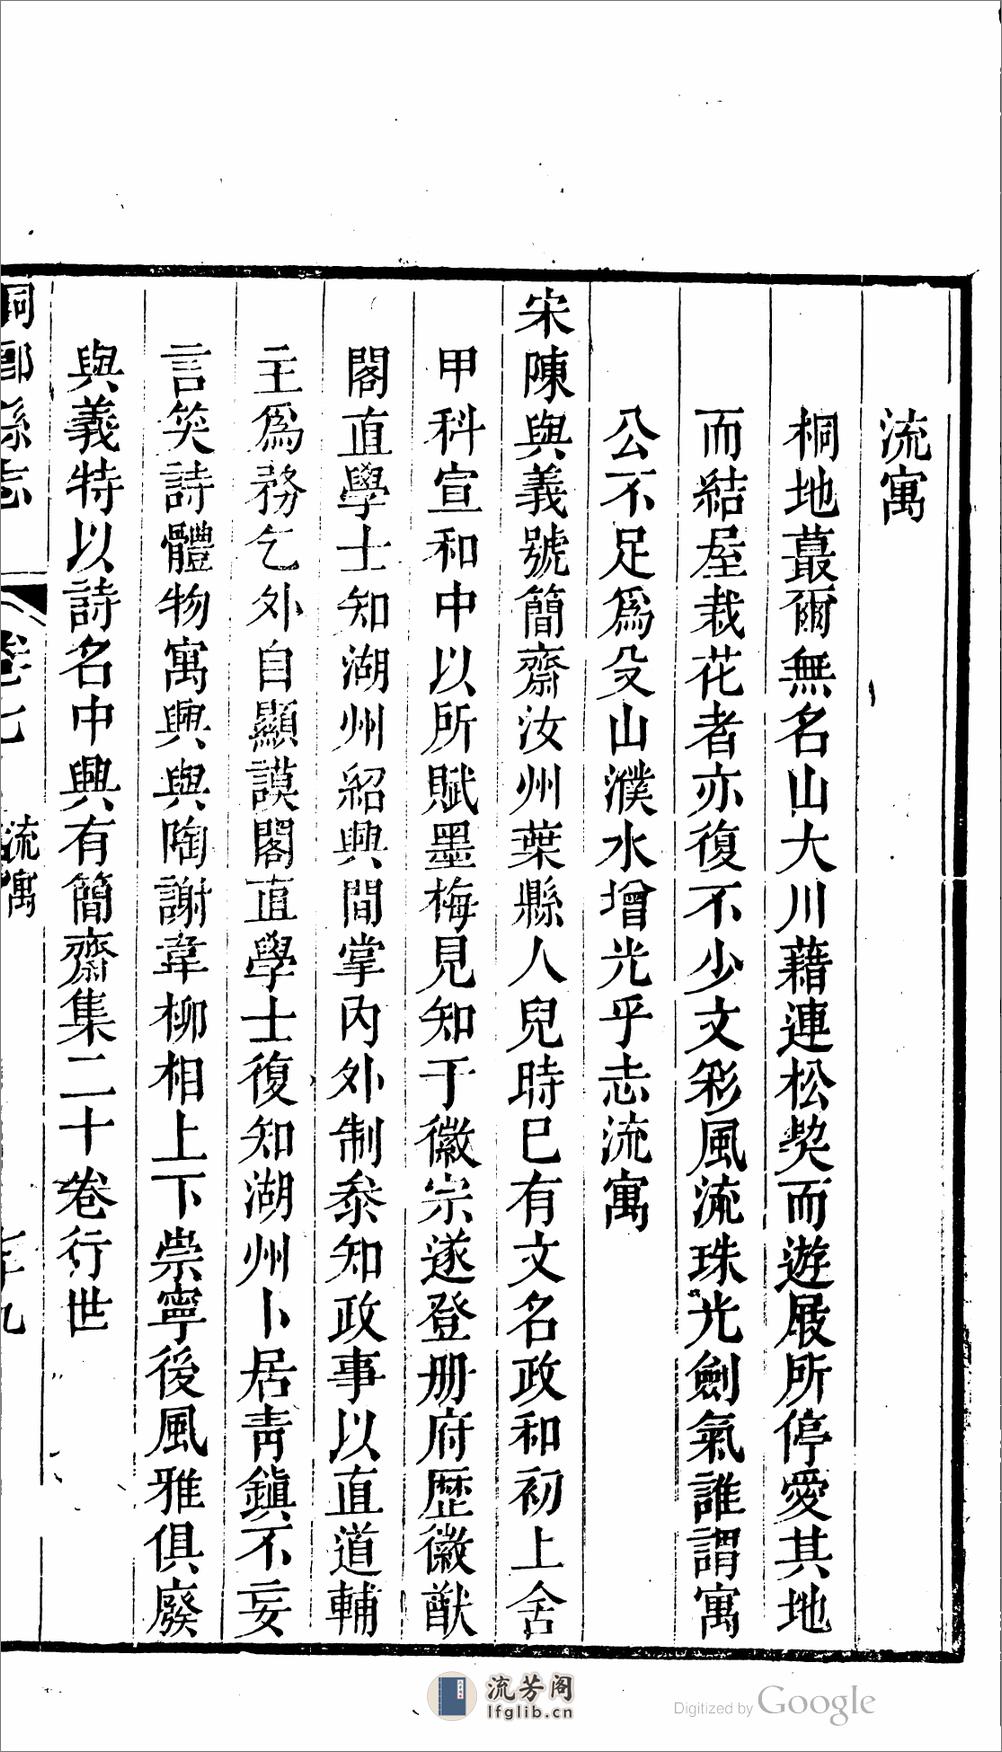 流寓
桐地蕞爾無名山大川藉連松㼤而遊屐所停愛其地
而結屋栽花者亦復不少文彩風流珠光劍氣誰謂寓
公不足爲殳山濮水增光乎志流寓
宋陳與義號簡齋汝州葉縣人兒時已有文名政和初上舍
甲科宣和中以所賦墨梅見知于徽宗遂登册府歷徽猷
閣直學士知湖州紹興間掌內外制叅知政事以直道輔
主爲務乞外自顯謨閣直學士復知湖州卜居靑鎭不妄
言笑詩體物寓興與陶謝韋柳相上下崇寧後風雅俱廢
與義特以詩名中興有簡齋集二十卷行世
桐鄕縣志 卷七 流寓
流芳阁
lfglib.cn
Digitized by Google